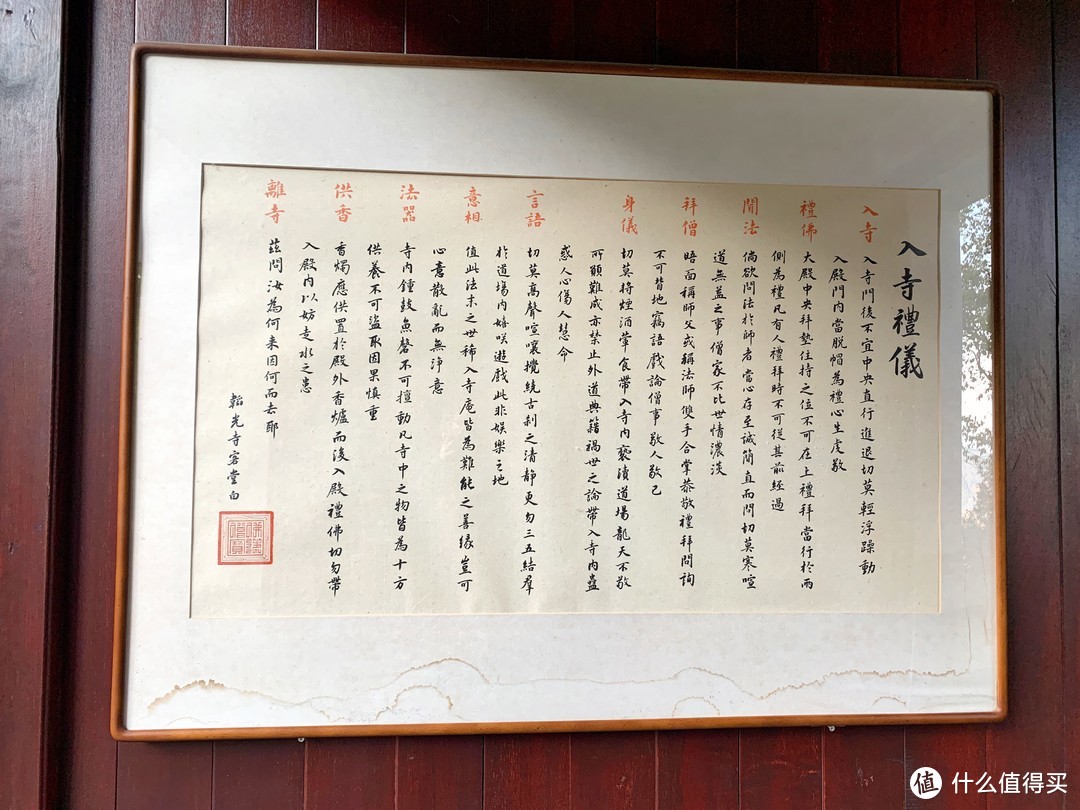 入寺禮儀
入寺
入寺門後不宜中央直行進退切莫輕浮躁動
入殿門內當脫帽為禮心生虔敬
禮佛
大殿中央拜墊住持之位不可在上禮拜當行於兩
側為禮凡有人禮拜時不可從其前經過
聞法
倘欲問法於師者當心存至誠簡直而問切莫寒喧
道無益之事僧家不比世情濃淡
拜僧
晤面稱師父或稱法師雙手合掌恭敬禮拜問詢
不可背地竊語戲論僧事敬人敬己
身儀
切莫將煙酒葷食帶入寺內褻瀆道場龍天不敬
所願難成亦禁止外道典籍禍世之論帶入寺內蠱
惑人心傷人慧命
言語
切莫高聲喧嚷攪繞古剎之清靜更勿三五結羣
於道場內嬉咲遊戲此非娛樂之地
意相
值此法末之世稀入寺庵皆為難能之善緣豈可
心意散亂而無淨意
法器
寺內鐘鼓魚磬不可擅動凡寺中之物皆為十方
供養不可盜取因果慎重
供香
香燭應供置於殿外香爐而後入殿禮佛切勿帶
入殿內以妨走水之患
離寺
茲問汝為何來因何而去耶
韜光寺客堂白
值 什么值得买